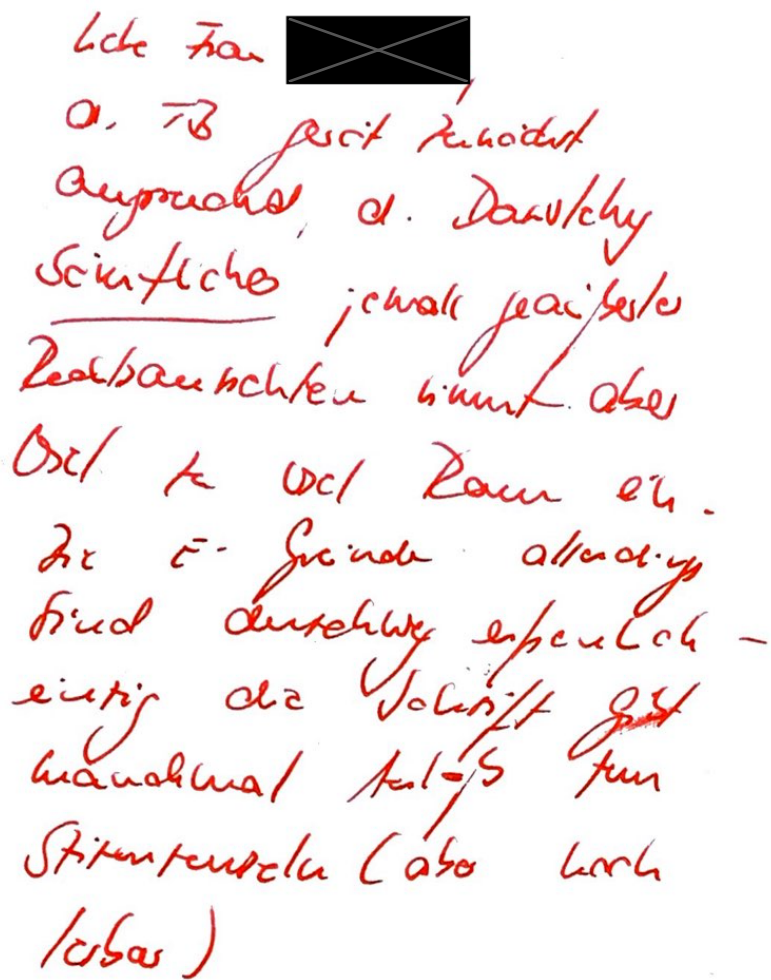 Liebe Frau
d. TB gerät zunächst
anspruchsl., d. Darstellung
sämtlicher jemals geäußerter
Rechtsansichten nimmt aber
viel zu viel Raum ein.
Die E-Gründe allerdings
sind durchweg erfreulich –
einzig die Schrift gibt
manchmal Anlaß zum
Stirnrunzeln (aber noch
lesbar)